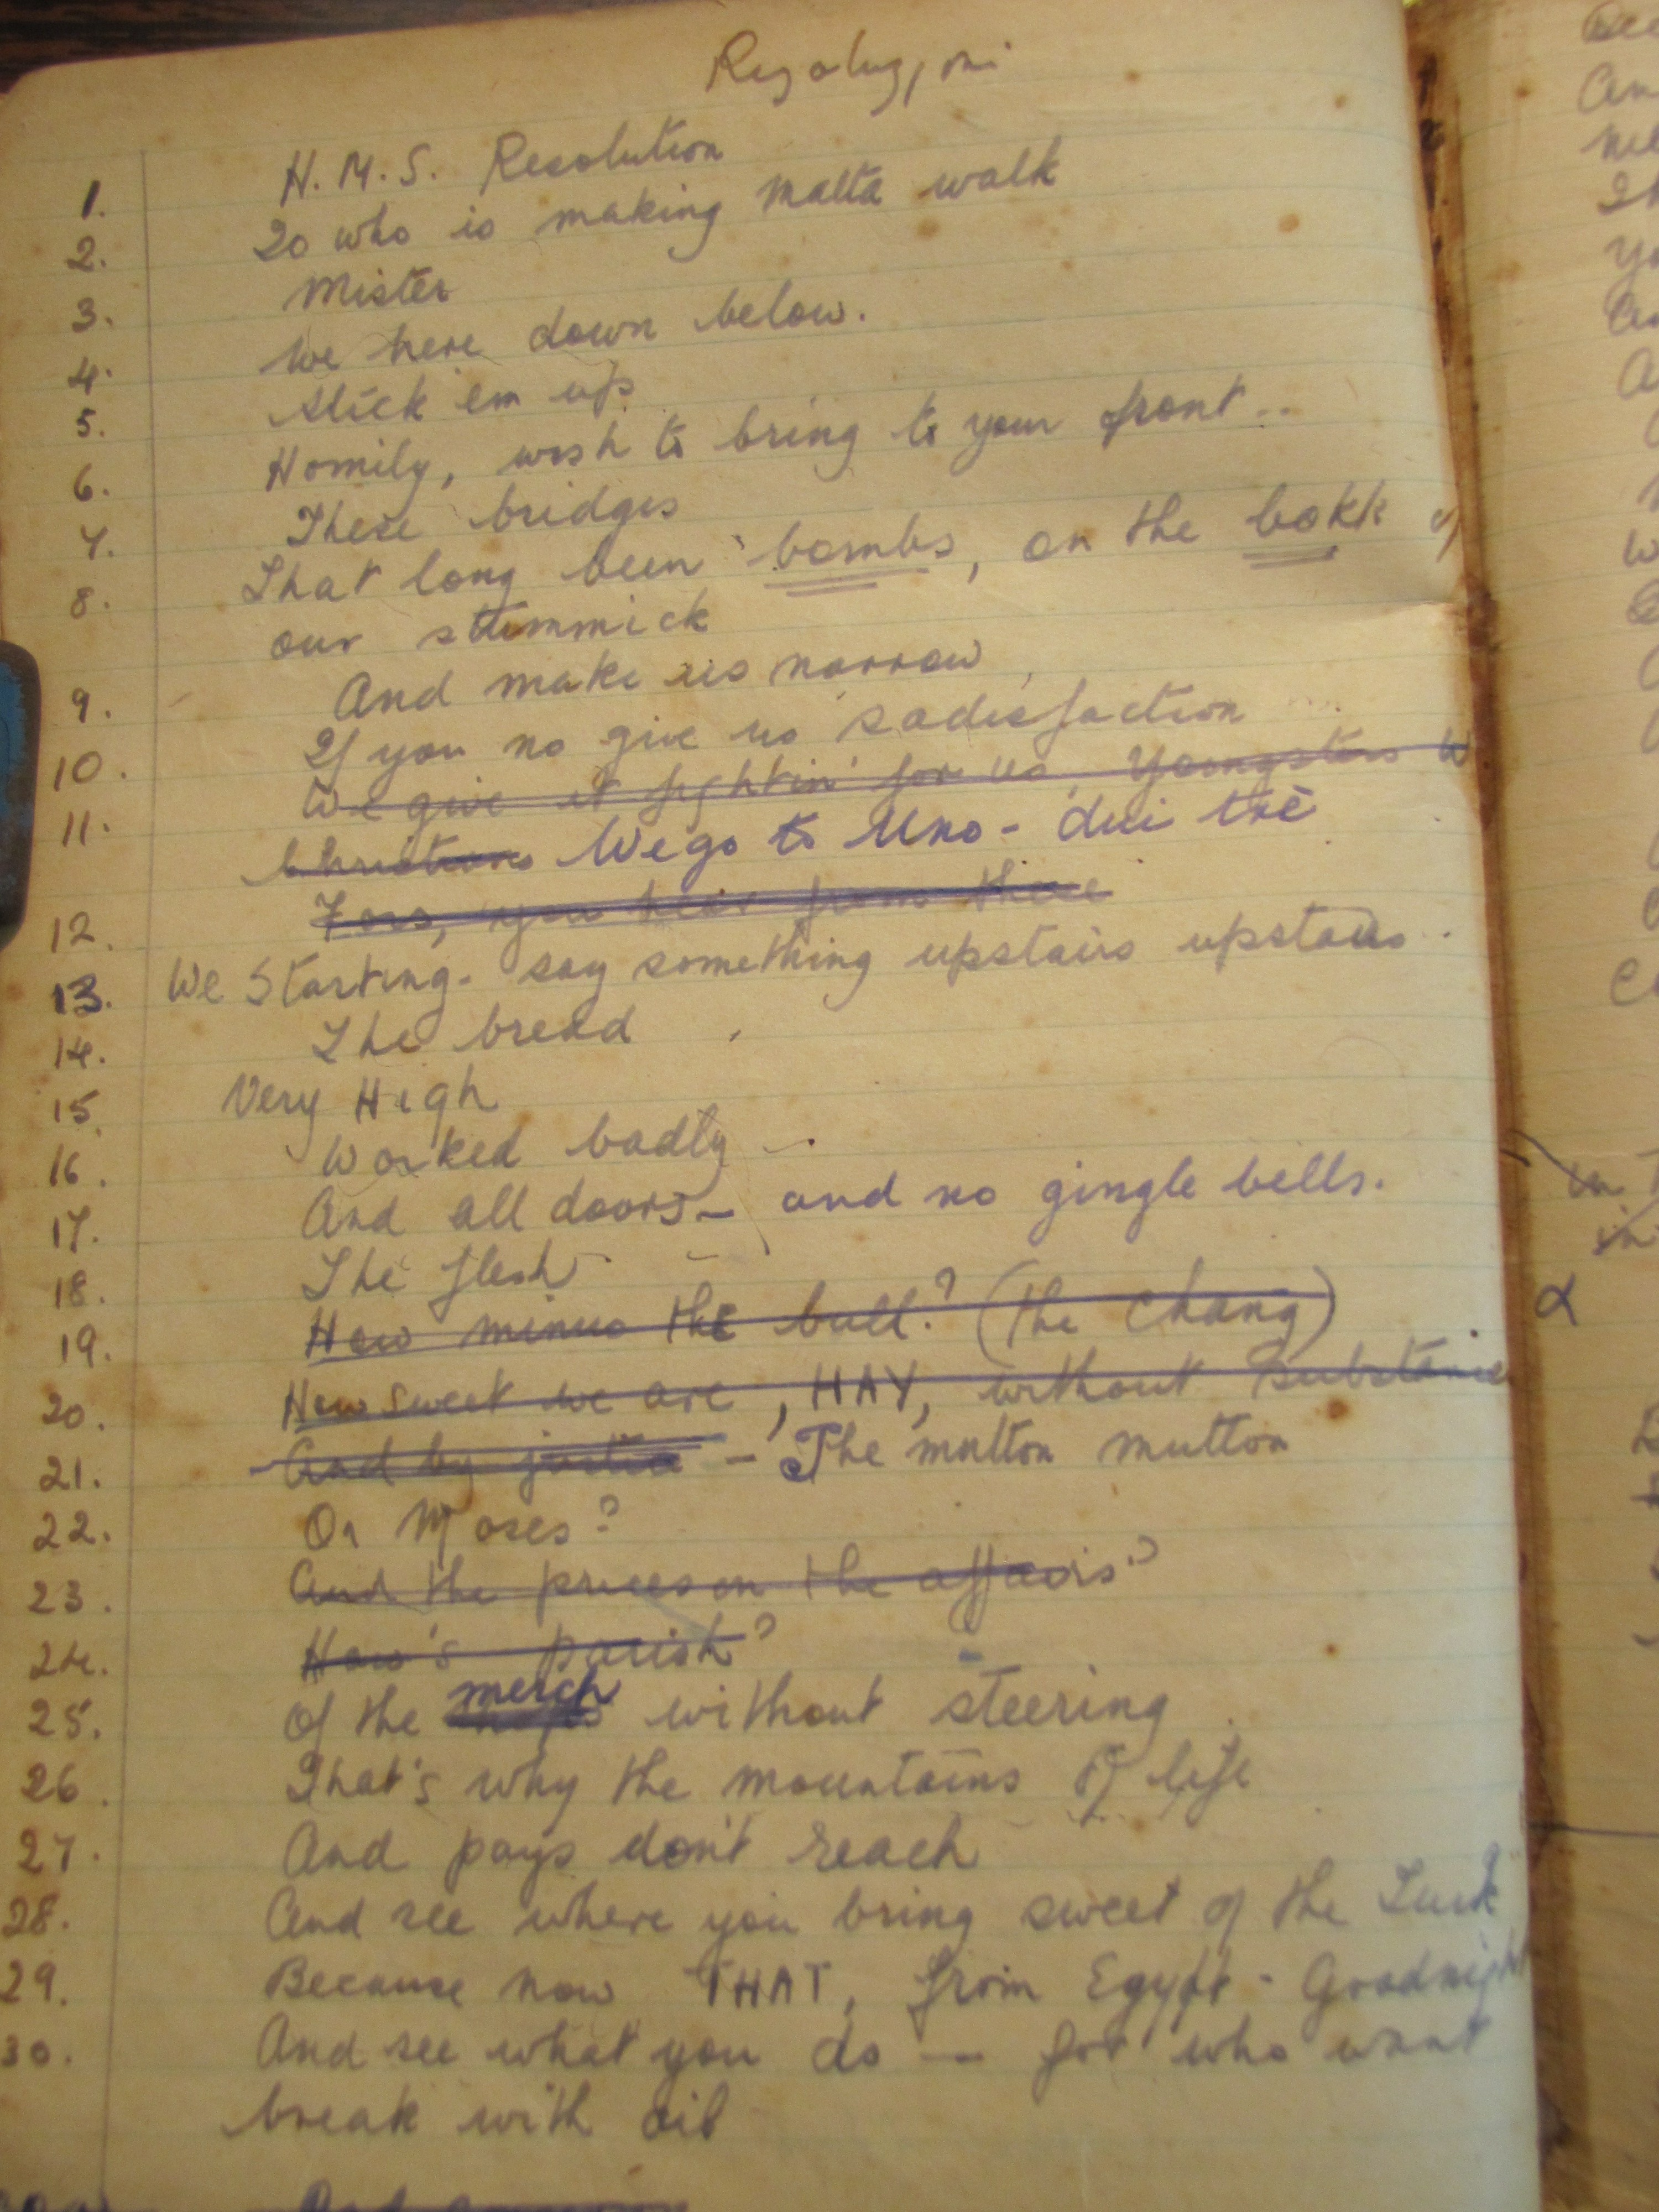 H.M.S. Resolution
1. To who is making Malta walk
2. Mister
3. We here down below.
4. Stick em up
5. Homily, wish to bring to your front..
6. These bridges
7. That long been bombs, on the bokk of
8. our stummick
And make us narrow
9. If you no give us sadisfaction
10. We give it fightin' for us, Youngsters W
11. Christians We go to Uno - dui trè
Fors, you hear from there
12. We Starting. say something upstairs upstairs.
13. The bread
14. Very High
15. Worked badly
16. And all doors - and no gingle bells.
17. The flesh
18. How minus the bull? (The Chang)
19. How sweet we are, HAY, without substance
20. And by justice - The mutton mutton
21. Or Moses?
22. And the prices on the affairs?
23. How's parish?
24. Of the merch without steering
25. That's why the mountains of life
26. And pays don't reach
27. And see where you bring sweet of the Turk
28. Because now THAT, from Egypt - Goodnight
29. And see what you do — for who want
30. break with oil